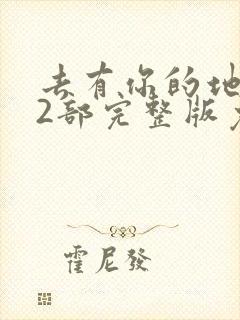 去有你的地
2部完整版
霍尼發